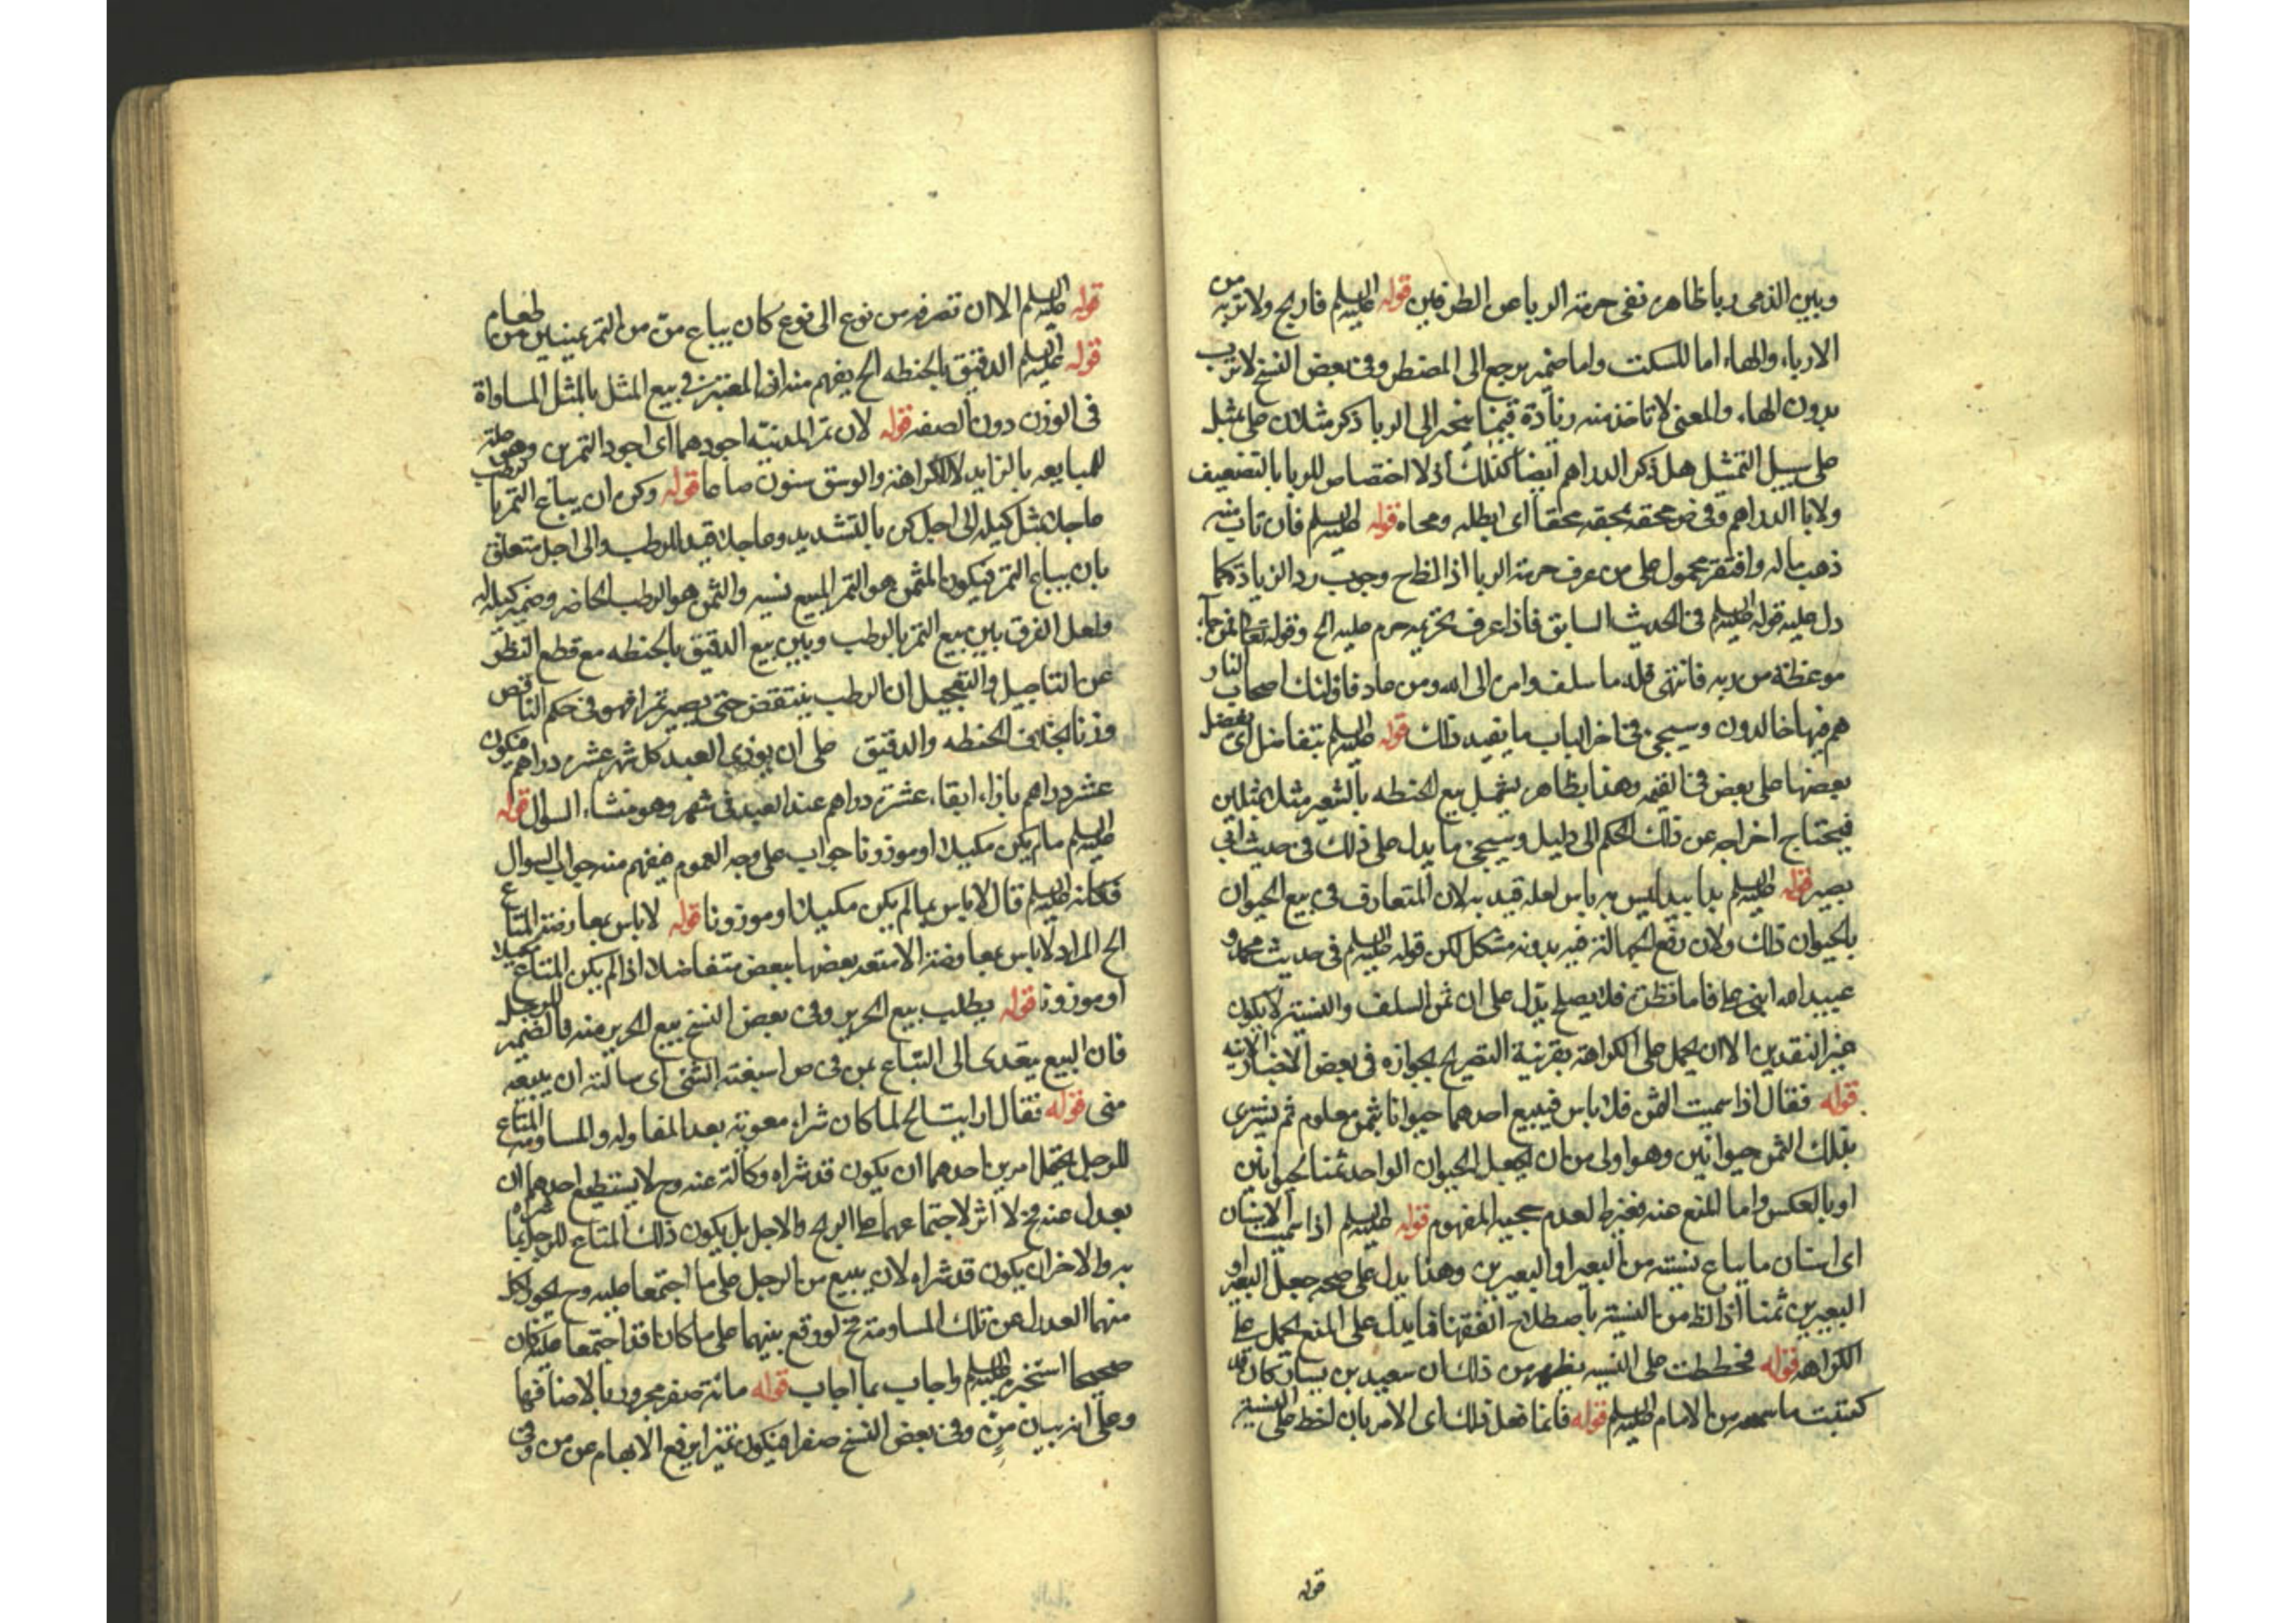 وبين الذمى ربا ظاهره نفى حرمة الربا من الطرفين قوله عليه السلم فاربح ولا تربه من
الارباء والهاء اما للسكت واما ضمير يرجع الى المضطر وفى بعض النسخ لا ترب
بدون الهاء والمعنى لا تاخذ منه زيادة فيما ينجر الى الربا ذكر مثلان على مثل
على سبيل التمثيل هل ذكر الدراهم ايضا كذلك اذ لا اختصاص للربا بالتضعيف
ولا بالدراهم وفى ص محقه يمحقه محقا اى ابطله ومحاه قوله عليه السلم فان تاب منه
ذهب ماله وافتقر محمول على من عرف حرمة الربا اذ الظاهر وجوب رد الزيادة كما
دل عليه قوله عليه السلم فى الحديث السابق فاذا عرف تحريمه حرم عليه الخ وقوله تعالى فمن جاءه
موعظة من ربه فانتهى فله ما سلف وامره الى الله ومن عاد فاولئك اصحاب النار
هم فيها خالدون وسيجئ فى اخر الباب ما يفيد ذلك قوله عليه السلم يتفاضل اى يفضل
بعضها على بعض فى القيمه وهذا بظاهره يشمل بيع الحنطه بالشعير مثلا بمثلين
فيحتاج اخراجه عن ذلك الحكم الى دليل وسيجئ ما يدل على ذلك فى حديث ابى
بصير قوله عليه السلم يدا بيد ليس به باس لعله قيد به لان المتعارف فى بيع الحيوان
بالحيوان ذلك ولان رفع الجهالة فيه بدونه مشكل لكن قوله عليه السلم فى حديث محمد و
عبيد الله ابنى على فاما نظرة فلا يصلح يدل على ان ثمن السلف والنسية لا يكون
غير النقدين الا ان يحمل على الكراهة بقرينة التصريح بجوازه فى بعض الاخبار الاتيه
قوله فقال اذا سميت الثمن فلا باس فيبيع احدهما حيوانا بثمن معلوم ثم يشترى
بذلك الثمن حيوانين وهو اولى من ان يجعل الحيوان الواحد ثمنا لحيوانين
او بالعكس واما المنع عنه فغير ظ لعدم حجية المفهوم قوله عليه السلم اذا سميت الاسنان
اى اسنان ما يباع نسية من البعير او البعيرين وهذا يدل على صحه جعل البعير او
البعيرين ثمنا اذ الظ من النسية باصطلاح الفقهاء فما يدل على المنع يحمل على
الكراهه قوله فخططت على النسيه يظهر من ذلك ان سعيد بن يسار كان قد
كتبت ما سمعه من الامام عليه السلم قوله فانما فعل ذلك اى الامر بان لخط على النسية
قوله
قوله عليه السلم الا ان تصرفه من نوع الى نوع كان يباع من من التمر بمنين من طعام
قوله عليه السلم الدقيق بالحنطه الخ يفهم منه ان المعتبر فى بيع المثل بالمثل المساواة
فى الوزن دون الصفه قوله لان تمر المدينة اجودهما اى اجود التمرين وهى علة
للمبايعه بالزايد لا للكراهة والوسق ستون صاعا قوله وكره ان يباع التمر بالرطب
عاجلا بمثل كيله الى اجل كره بالتشديد وعاجلا قيد للرطب والى اجل متعلق
بان يباع التمر فيكون المثمن هو التمر المبيع نسيه والثمن هو الرطب الحاضر وضمير كيله له
ولعل الفرق بين بيع التمر بالرطب وبين بيع الدقيق بالحنطه مع قطع النظر
عن التاجيل والتعجيل ان الرطب ينتقص حتى يصير تمرا فهو فى حكم الناقص
وزنا بخلاف الحنطه والدقيق على ان يؤدى العبد كل شهر عشر دراهم فيكون
عشر دراهم بازاء ابقاء عشرة دراهم عند العبد فى شهر وهو منشاء السؤال قوله
عليه السلم ما لم يكن مكيلا او موزونا جواب على وجه العموم فيفهم منه جواب السوال
فكانه عليه السلم قال لا باس بما لم يكن مكيلا او موزونا قوله لا باس بمعاوضة المتاع
الخ المراد لا باس بمعاوضة الامتعه بعضها ببعض متفاضلا اذا لم يكن المتاع مكيلا
او موزونا قوله يطلب بيع الحرير وفى بعض النسخ يبيع الحرير منه فالضمير للرجل
فان البيع يتعدى الى المتباع بمن فى ص استبعته الشئ اى سالته ان يبيعه
منى قوله فقال ارايت الخ لما كان شراء معوية بعد المقاوله والمساومه المتاع
للرجل يحتمل امرين احدهما ان يكون قد شراه وكالة عنه وح لا يستطيع احدهما ان
يعدل عنه فح لا اثر لاجتماعهما على الربح والاجل بل يكون ذلك المتاع للرجل بما شراه
به والاخر ان يكون قد شراه لان يبيع من الرجل على ما اجتمعا عليه وح يجوز لكل
منهما العدول عن تلك المساومة فح لو وقع بينهما على ما كانا قد اجتمعا عليه كان
صحيحا استخبره عليه السلم واجاب بما اجاب قوله مائة صفر مجرور بالاضافه
وعلى انه بيان من وفى بعض النسخ صفرا فيكون تميزا يرفع الابهام عن من وفى